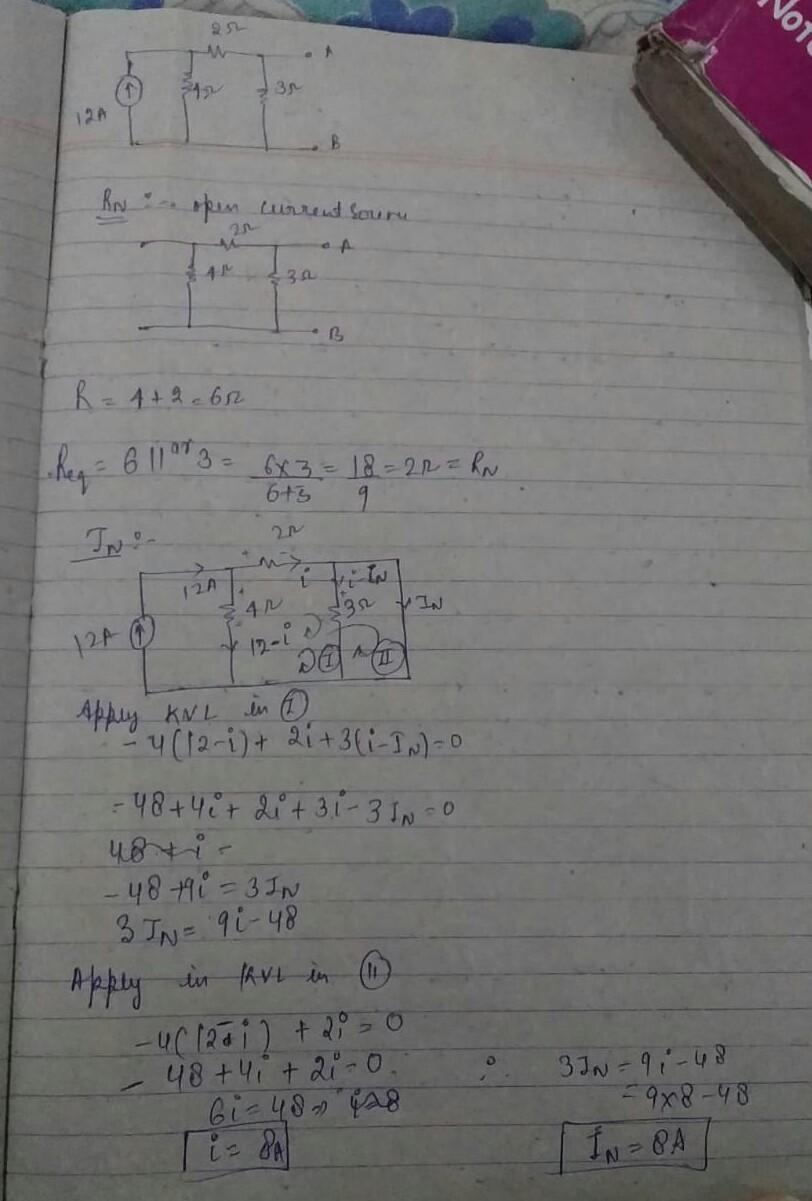 Note
2Ω
A
12A
4Ω
3Ω
B
RN :- open current source
2Ω
A
4Ω
3Ω
B
R = 4 + 2 = 6Ω
Req = 6 11er 3 = 6×3/6+3 = 18/9 = 2Ω = RN
IN :-
2Ω
12A
i
i-IN
12A
4Ω
3Ω
IN
12-i
I
II
Apply KVL in I
- 4(12-i) + 2i + 3(i-IN) = 0
- 48 + 4i + 2i + 3i - 3IN = 0
48 + i =
- 48 + 9i = 3IN
3IN = 9i - 48
Apply in KVL in II
- 4(12-i) + 2i = 0
- 48 + 4i + 2i = 0 ∴ 3IN = 9i - 48
6i = 48 ⇒ i=8 = 9×8 - 48
i = 8A IN = 8A